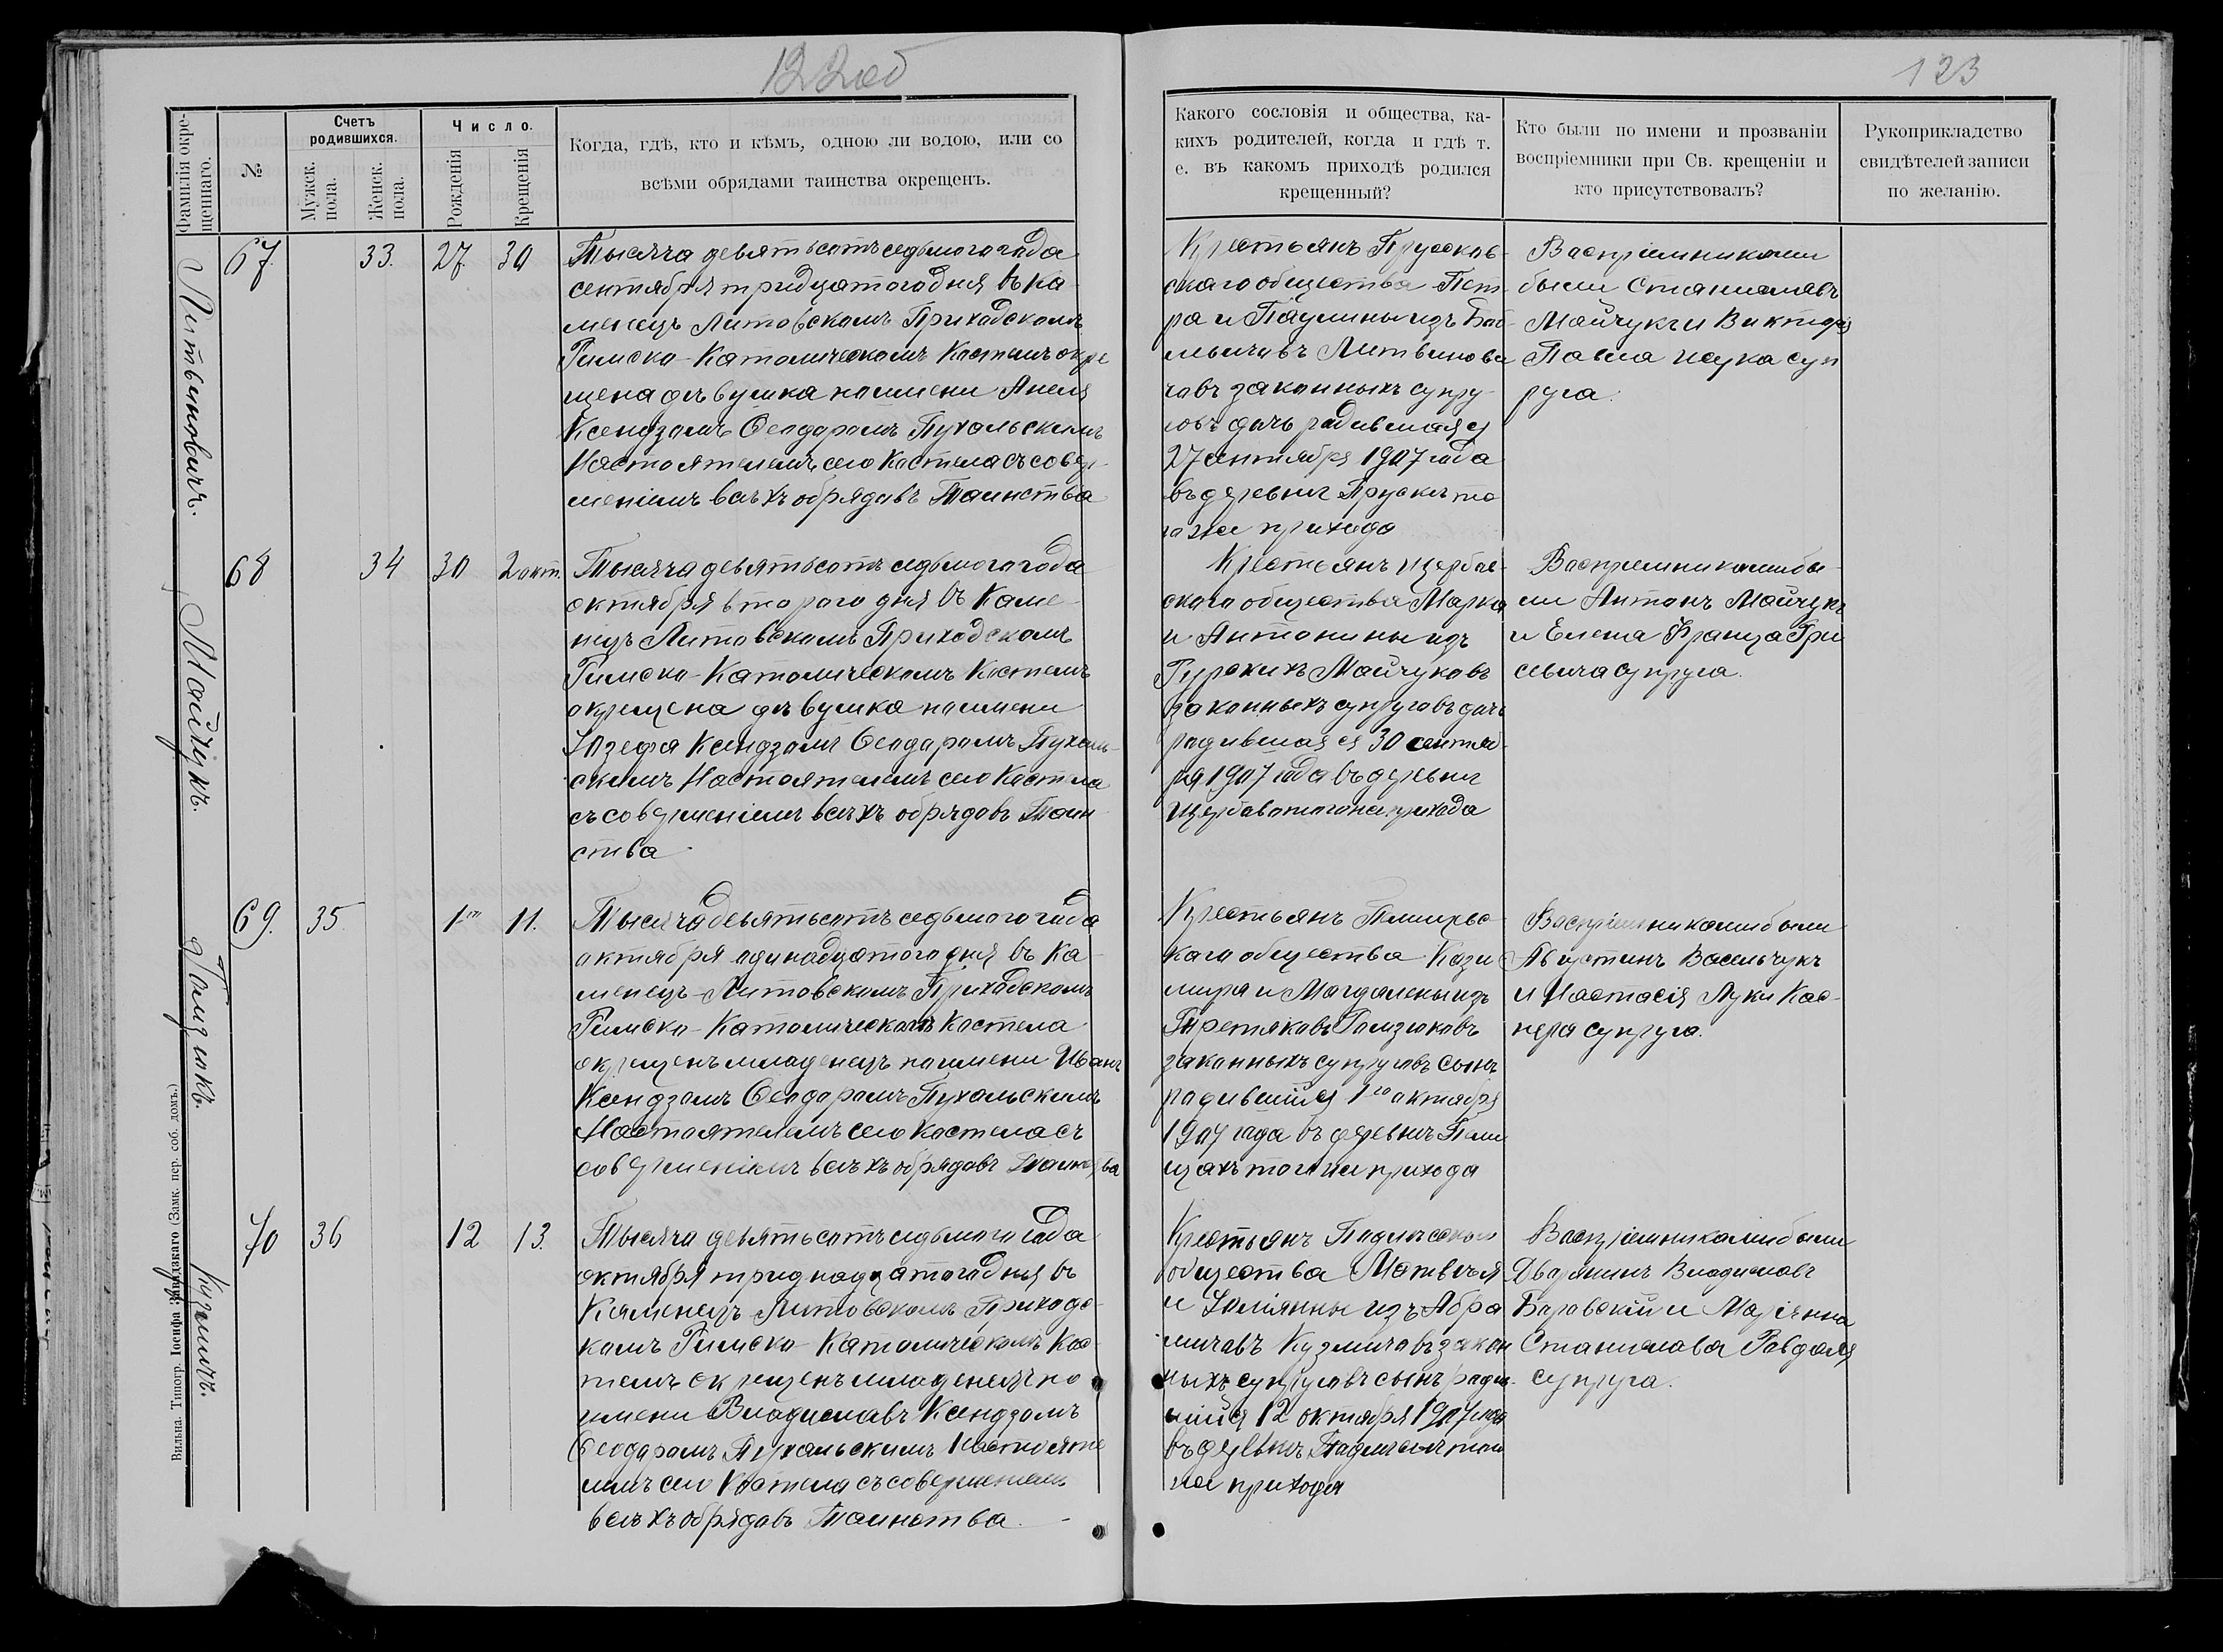 122об
123
Фамилія окре-
щеннаго.
№
Счетъ
родившихся.
Мужск.
пола.
Женск.
пола.
Число.
Рожденія
Крещенія
Когда, гдѣ, кто и кѣмъ, одною ли водою, или со
всѣми обрядами таинства окрещенъ.
Какого сословія и общества, ка-
кихъ родителей, когда и гдѣ т.
е. въ какомъ приходѣ родился
крещенный?
Кто были по имени и прозваніи
воспріемники при Св. крещеніи и
кто присутствовалъ?
Рукоприкладство
свидѣтелей записи
по желанію.
Литвиновичъ.
67.
33.
27.
30
Тысяча девятьсотъ седьмого года
сентября тридцатого дня въ Ка-
менецъ Литовскомъ Приходскомъ
Римско-Католическомъ Костелѣ окре
щена дѣвушка по имени Анеля
Ксендзомъ Ѳеодоромъ Пухальскимъ
Настоятелемъ сего Костела съ совер-
шеніемъ всѣхъ обрядовъ Таинства
Крестьянъ Прусков-
скаго общества Пет-
ра и Паулины изъ
Литвинови
човъ законныхъ супру-
говъ дочь родившаяся
27 сентября 1907 года
въ деревнѣ Пруски то
го же прихода
Воспріемниками
были Станиславъ
Мойчукъ и Викторія
Павла супруга
Майчукъ.
68
34
30
2 окт.
Тысяча девятьсотъ седьмого года
октября второго дня въ Каме-
нецъ Литовскомъ Приходскомъ
Римско-Католическомъ Костелѣ
окрещена дѣвушка по имени
Юзефа Ксендзомъ Ѳеодоромъ Пухаль-
скимъ Настоятелемъ сего Костела
съ совершеніемъ всѣхъ обрядовъ Таин
ства
Крестьянъ Щербов-
скаго общества Марка
и Антонины изъ
Гурскихъ Мойчуковъ
законныхъ супруговъ дочь
родившаяся 30 сентяб-
ря 1907 года въ деревнѣ
Щербово того же прихода
Воспріемниками бы-
ли Антонъ Мойчукъ
и Елена Франца Гри
севича супруга.
Гомзюкъ.
69.
35
1го
11.
Тысяча девятьсотъ седьмого года
октября одинадцатого дня въ Ка-
менецъ-Литовскомъ Приходскомъ
Римско-Католическомъ Костела
окрещенъ младенецъ по имени Иванъ
Ксендзомъ Ѳеодоромъ Пухальскимъ
Настоятелемъ сего Костела съ
совершеніемъ всѣхъ обрядовъ Таинства
Крестьянъ
каго общества Кази
мира и Магдалены изъ
Третяковъ Гомзюковъ
законныхъ супруговъ сынъ
родившійся 1го октября
1907 года въ деревнѣ Пели
щахъ того же прихода
Воспріемниками были
Августинъ Васильчукъ
и Настасія Луки Кас-
пера супруга.
Кузмичъ.
70
36
12
13.
Тысяча девятьсотъ седьмого года
октября тринадцатого дня въ
Каменецъ Литовскомъ Приходс-
комъ Римско-Католическомъ Кос-
телѣ окрещенъ младенецъ по
имени Владиславъ Ксендзомъ
Ѳеодоромъ Пухальскимъ Настояте
лемъ сего Костела съ совершеніемъ
всѣхъ обрядовъ Таинства.
Крестьянъ
общества Матвѣя
и Юліянны изъ Абра
мичовъ Кузмичовъ закон
ныхъ супруговъ сынъ родив-
шійся 12 октября 1907 года
въ деревнѣ того
же прихода
Воспріемниками были
Дворянинъ Владиславъ
Боровскій и Маріянна
Станислава Равдаля
супруга.
Вильна. Типогр. Іосифа Завадзкаго (Замк. пер. соб. домъ.)